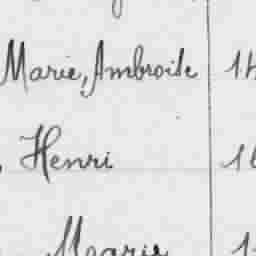 Marie, Ambroise 14
, Henri 16
Marie 1